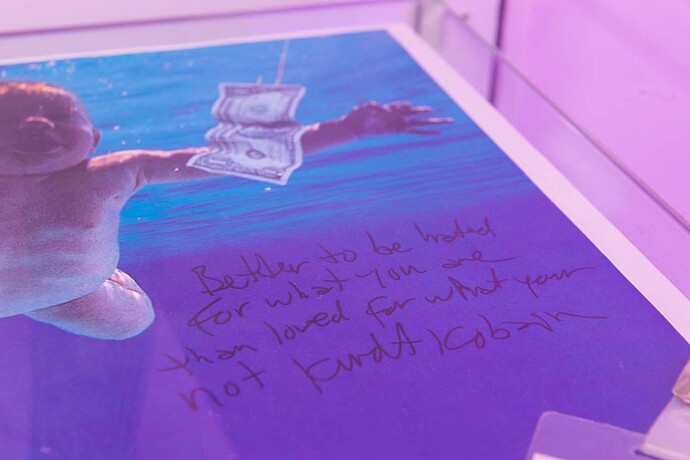 Better to be hated
for what you are
than loved for what your
not Kurdt Kobain